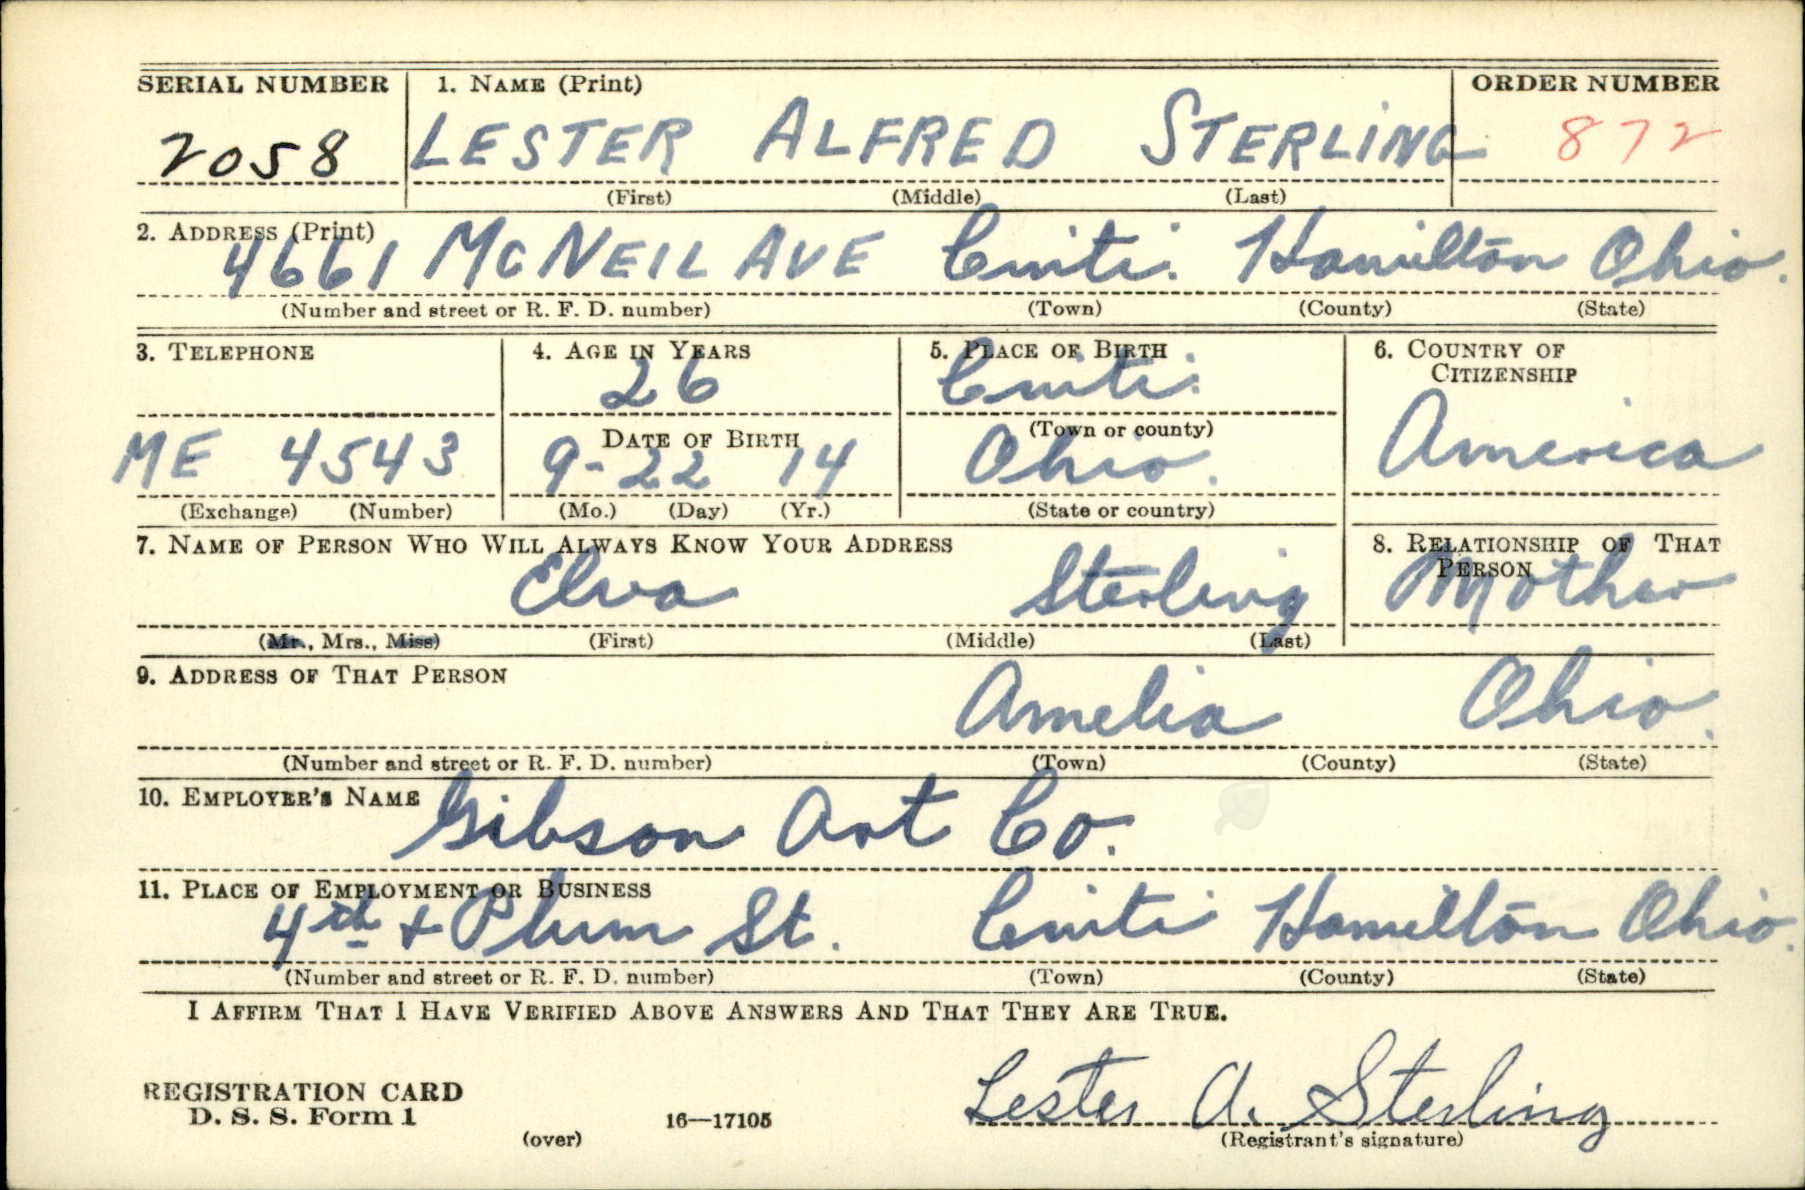 SERIAL NUMBER 1. NAME (Print) ORDER NUMBER
2058 LESTER ALFRED STERLING 872
(First) (Middle) (Last)
2. ADDRESS (Print)
4661 MCNEIL AVE Cinti. Hamilton Ohio.
(Number and street or R. F. D. number) (Town) (County) (State)
3. TELEPHONE 4. AGE IN YEARS 5. PLACE OF BIRTH 6. COUNTRY OF CITIZENSHIP
26 Cinti.
DATE OF BIRTH (Town or county)
ME 4543 9-22 14 Ohio. America
(Exchange) (Number) (Mo.) (Day) (Yr.) (State or country)
7. NAME OF PERSON WHO WILL ALWAYS KNOW YOUR ADDRESS 8. RELATIONSHIP OF THAT PERSON
Elva Sterling Mother
(Mr., Mrs., Miss) (First) (Middle) (Last)
9. ADDRESS OF THAT PERSON
Amelia Ohio.
(Number and street or R. F. D. number) (Town) (County) (State)
10. EMPLOYER'S NAME
Gibson Art Co.
11. PLACE OF EMPLOYMENT OR BUSINESS
4th + Plum St. Cinti Hamilton Ohio.
(Number and street or R. F. D. number) (Town) (County) (State)
I AFFIRM THAT I HAVE VERIFIED ABOVE ANSWERS AND THAT THEY ARE TRUE.
REGISTRATION CARD
D. S. S. Form 1 16—17105 Lester A. Sterling
(over) (Registrant's signature)